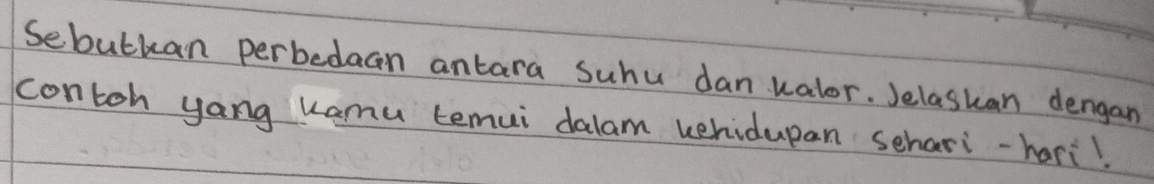 Sebutkan perbedaan antara suhu dan kalor. Jelaskan dengan
contoh yang kamu temui dalam kehidupan sehari-hari!